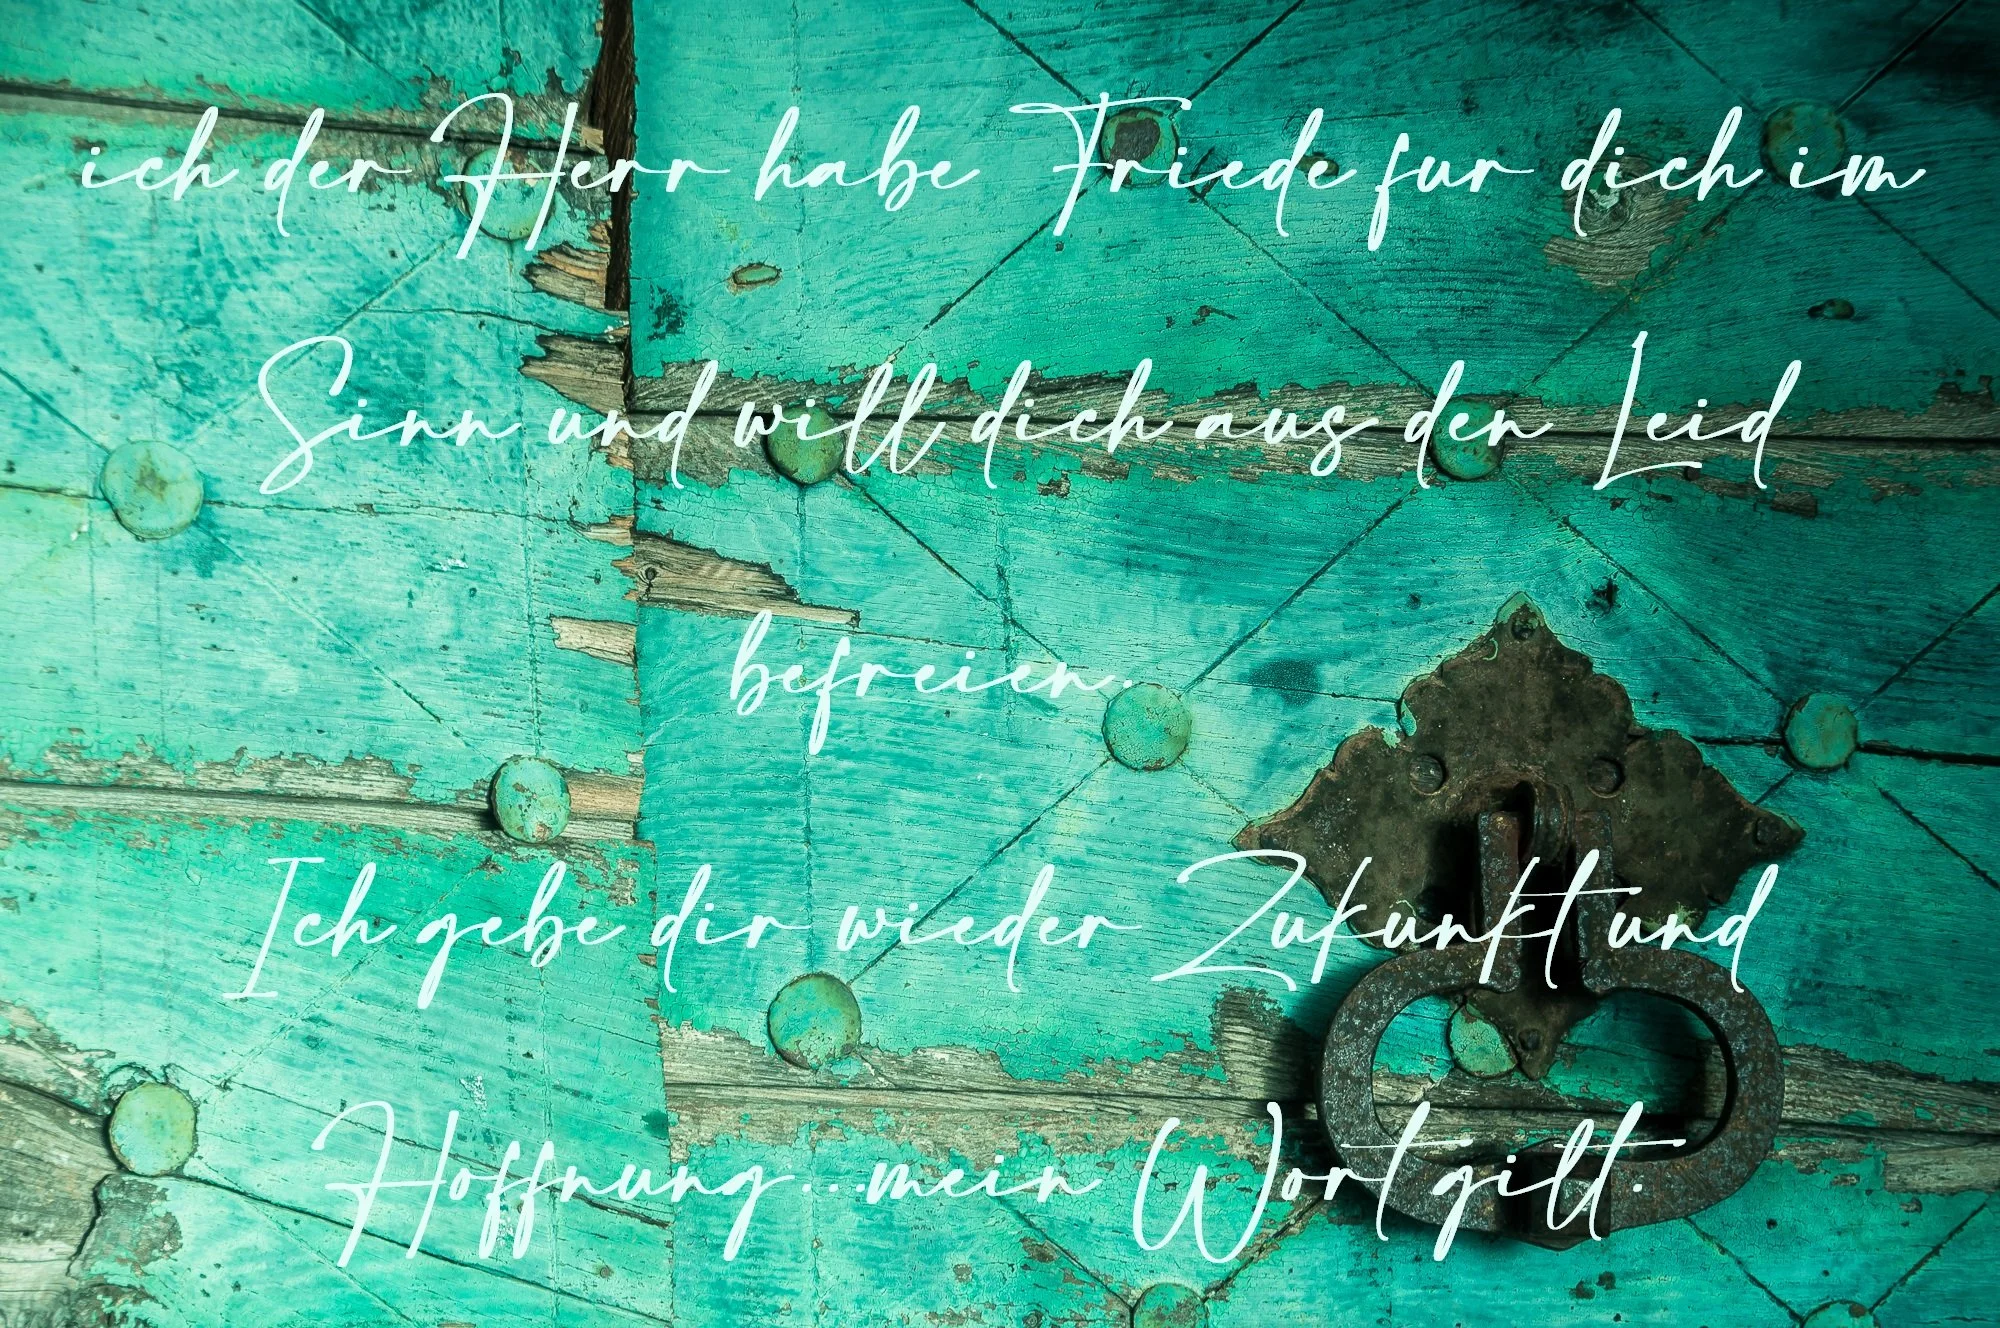 ich der Herr habe Friede fur dich im
Sinn und will dich aus den Leid
befreien.
Ich gebe dir wieder Zukunft und
Hoffnung...mein Wort gilt.